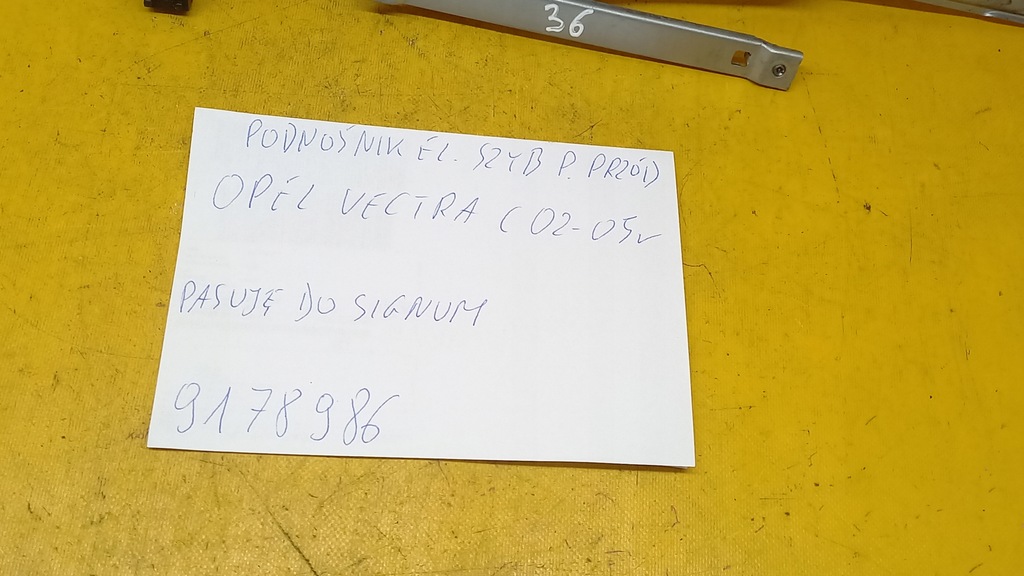 36
PODNOŚNIK EL. SZYB P. PRZÓD
OPEL VECTRA C 02-05r
PASUJE DO SIGNUM
9178986